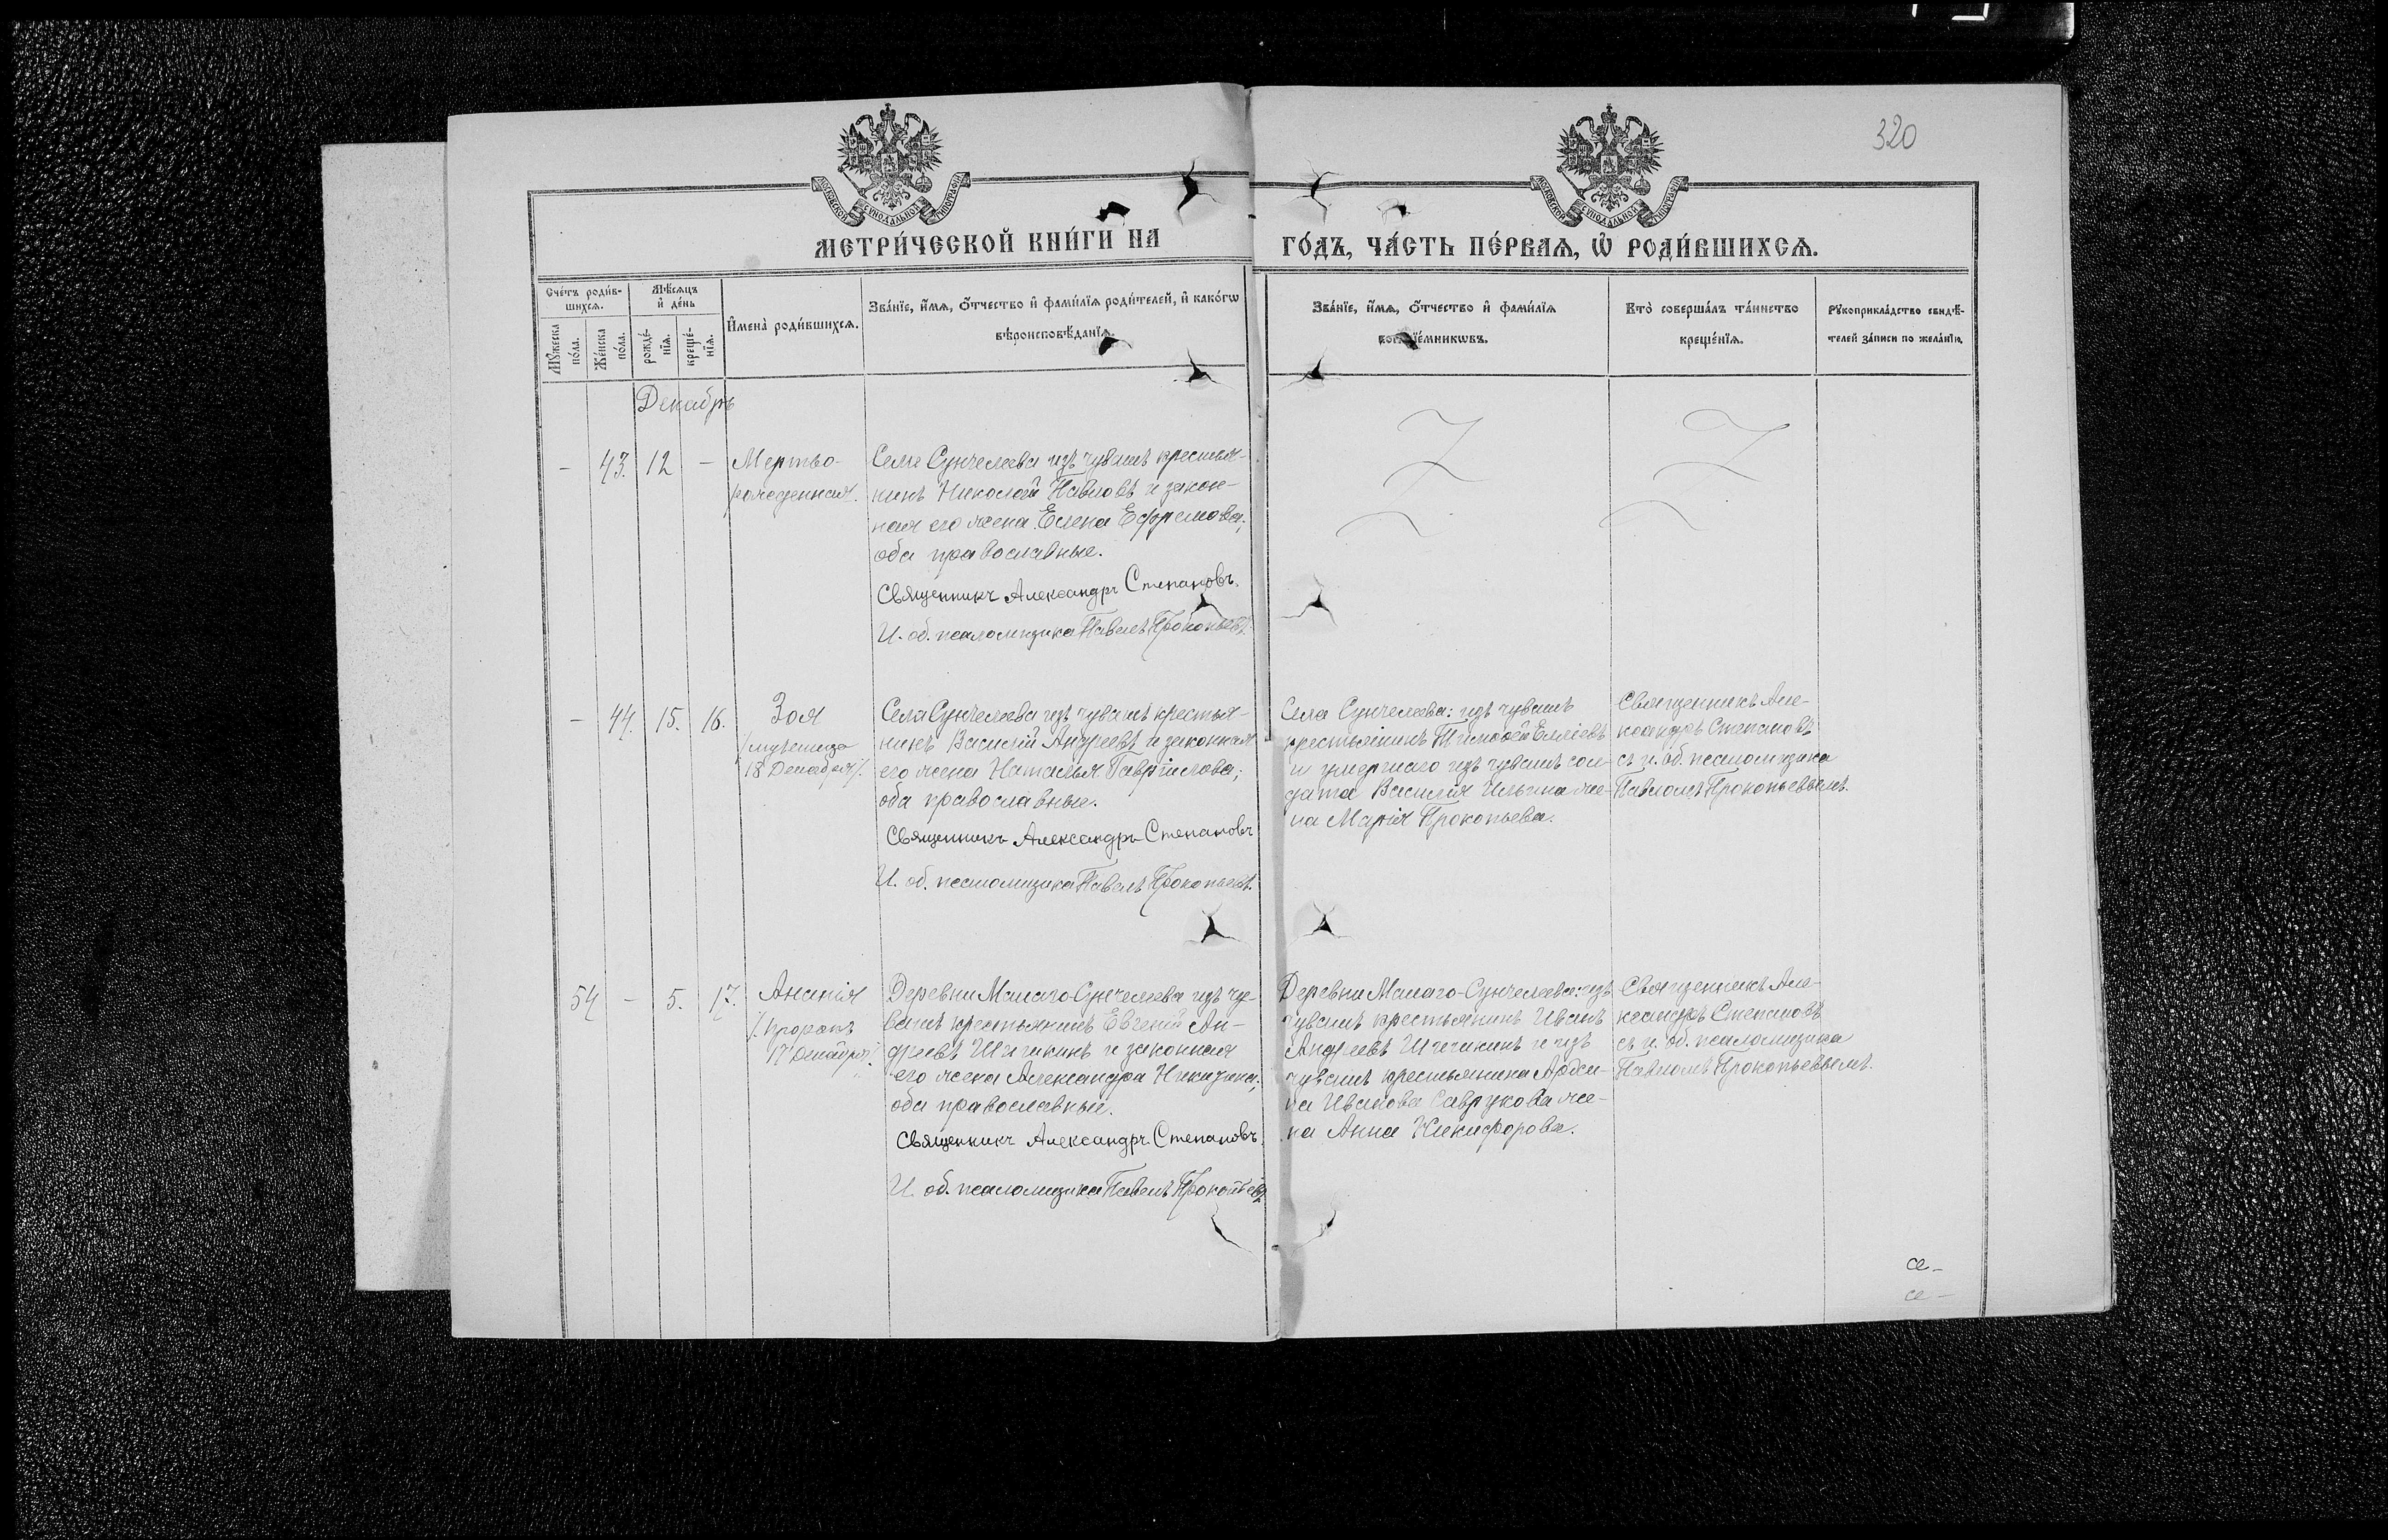 320
МОСКОВСКОЙ СѴНОДАЛЬНОЙ ТИПОГРАФІИ
МОСКОВСКОЙ СѴНОДАЛЬНОЙ ТИПОГРАФІИ
МЕТРИ́ЧЕСКОЙ КНИ́ГИ НА ГО́ДЪ, ЧА́СТЬ ПЕ́РВАѦ, Ѡ РОДИ́ВШИХСѦ.
Сче́тъ роди́в-
шихсѧ.
Мꙋ́жеска
по́ла.
Же́нска
по́ла.
Мѣ́сѧцъ
и҆ де́нь
рожде́-
нїѧ.
креще́-
нїѧ.
И҆мена̀ роди́вшихсѧ.
Зва́нїе, и҆́мѧ, ѻ҆́тчество и҆ фами́лїѧ роди́телей, и҆ како́гѡ
вѣроисповѣ́данїѧ.
Зва́нїе, и҆́мѧ, ѻ҆́тчество и҆ фами́лїѧ
Кто̀ соверша́лъ та́инство
креще́нїѧ.
Рꙋкоприкла́дство свидѣ́-
телей за́писи по жела́нїю.
Декабрь
- 43. 12 - Мертво-
рожденная.
Села Сунчелеева изъ чувашъ крестья-
нинъ Николай Павловъ и закон-
ная его жена Елена Ефремова;
оба православные.
Священникъ Александръ Степановъ.
И. об. псаломщика Павелъ Прокопьевъ.
- 44. 15. 16. Зоя
/мученица
18 Декабря/.
Села Сунчелеева изъ чувашъ крестья-
нинъ Василій Андреевъ и законная
его жена Наталья Гавріилова;
оба православные.
Священникъ Александръ Степановъ
И. об. псаломщика Павелъ Прокопьевъ.
Села Сунчелеева: изъ чувашъ
крестьянинъ Тимофей
и умершаго изъ чувашъ сол-
дата Василія Ильина же-
на Марія Прокопьева.
Священникъ Але-
ксандръ Степановъ
съ и. об. псаломщика
Павломъ Прокопьевымъ.
54 - 5. 17. Ананія
/. пророкъ
17 Декабря/.
Деревни Малаго Сунчелеева изъ чу-
вашъ крестьянинъ Евгеній Ан-
дреевъ Шигикинъ и законная
его жена Александра Никитина;
оба православные.
Священникъ Александръ Степановъ.
И. об. псаломщика Павелъ Прокопьевъ
Деревни Малаго-Сунчелеева: изъ
чувашъ крестьянинъ Иванъ
Андреевъ Шигикинъ и изъ
чувашъ крестьянина
Иванова Саврукова же-
на Анна Никифорова.
Священникъ Але-
ксандръ Степановъ
съ и. об. псаломщика
Павломъ Прокопьевымъ.
се-
се-